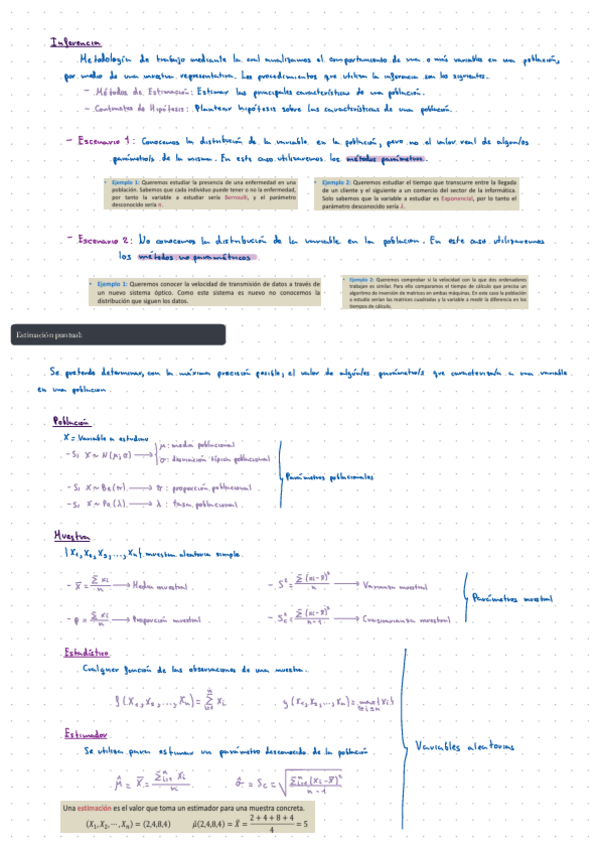 Inferencia
Metodología de trabajo mediante la cual analizamos el comportamiento de una o más variable en una población,
por medio de una muestra representativa. Los procedimientos que utiliza la inferencia son los siguientes.
- Métodos de Estimación: Estimar las principales características de una población.
- Contrastes de Hipótesis: Plantear hipótesis sobre las características de una población.
- Escenario 1: Conocemos la distribución de la variable en la población, pero no el valor real de algún/os
parámetro/s de la misma. En este caso utilizaremos los métodos paramétricos.
• Ejemplo 1: Queremos estudiar la presencia de una enfermedad en una
población. Sabemos que cada individuo puede tener o no la enfermedad,
por tanto la variable a estudiar sería Bernoulli, y el parámetro
desconocido sería π.
• Ejemplo 2: Queremos estudiar el tiempo que transcurre entre la llegada
de un cliente y el siguiente a un comercio del sector de la informática.
Solo sabemos que la variable a estudiar es Exponencial, por lo tanto el
parámetro desconocido sería λ.
- Escenario 2: No conocemos la distribución de la variable en la población. En este caso utilizaremos
los métodos no paramétricos
• Ejemplo 1: Queremos conocer la velocidad de transmisión de datos a través de
un nuevo sistema óptico. Como este sistema es nuevo no conocemos la
distribución que siguen los datos.
• Ejemplo 2: Queremos comprobar si la velocidad con la que dos ordenadores
trabajan es similar. Para ello comparamos el tiempo de cálculo que precisa un
algoritmo de inversión de matrices en ambas máquinas. En este caso la población
a estudio serían las matrices cuadradas y la variable a medir la diferencia en los
tiempos de cálculo.
Estimación puntual:
Se pretende determinar, con la máxima precisión posible, el valor de algún/os parámetro/s que caracteriza/n a una variable
en una población.
Población
X = Variable a estudiar
- Si X ~ N(μ;σ) → { μ: media poblacional
σ: desviación típica poblacional
- Si X ~ Be(π) → π: proporción poblacional
- Si X ~ Po(λ) → λ: tasa poblacional
Parámetros poblacionales
Muestra
{X₁, X₂, X₃, ..., Xₙ} muestra aleatoria simple.
- x̄ = Σxi/n → Media muestral
- S² = Σ(xi-x̄)²/n → Varianza muestral
- p = Σxi/n → Proporción muestral
- Sc² = Σ(xi-x̄)²/n-1 → Cuasivarianza muestral
Parámetros muestral
Estadístico
Cualquier función de las observaciones de una muestra.
f(X₁, X₂, ..., Xₙ) = Σⁿᵢ₌₁ Xi
g(X₁, X₂, ..., Xₙ) = max 1≤i≤n {Xi}
Estimador
Se utiliza para estimar un parámetro desconocido de la población
μ̂ = X̄ = Σⁿᵢ₌₁ Xi/n
σ̂ = Sc = √(Σⁿᵢ₌₁(Xi-X̄)²/n-1)
Variables aleatorias
Una estimación es el valor que toma un estimador para una muestra concreta.
(X₁, X₂, ⋯, Xₙ) = (2,4,8,4) μ̂(2,4,8,4) = X̄ = 2+4+8+4/4 = 5